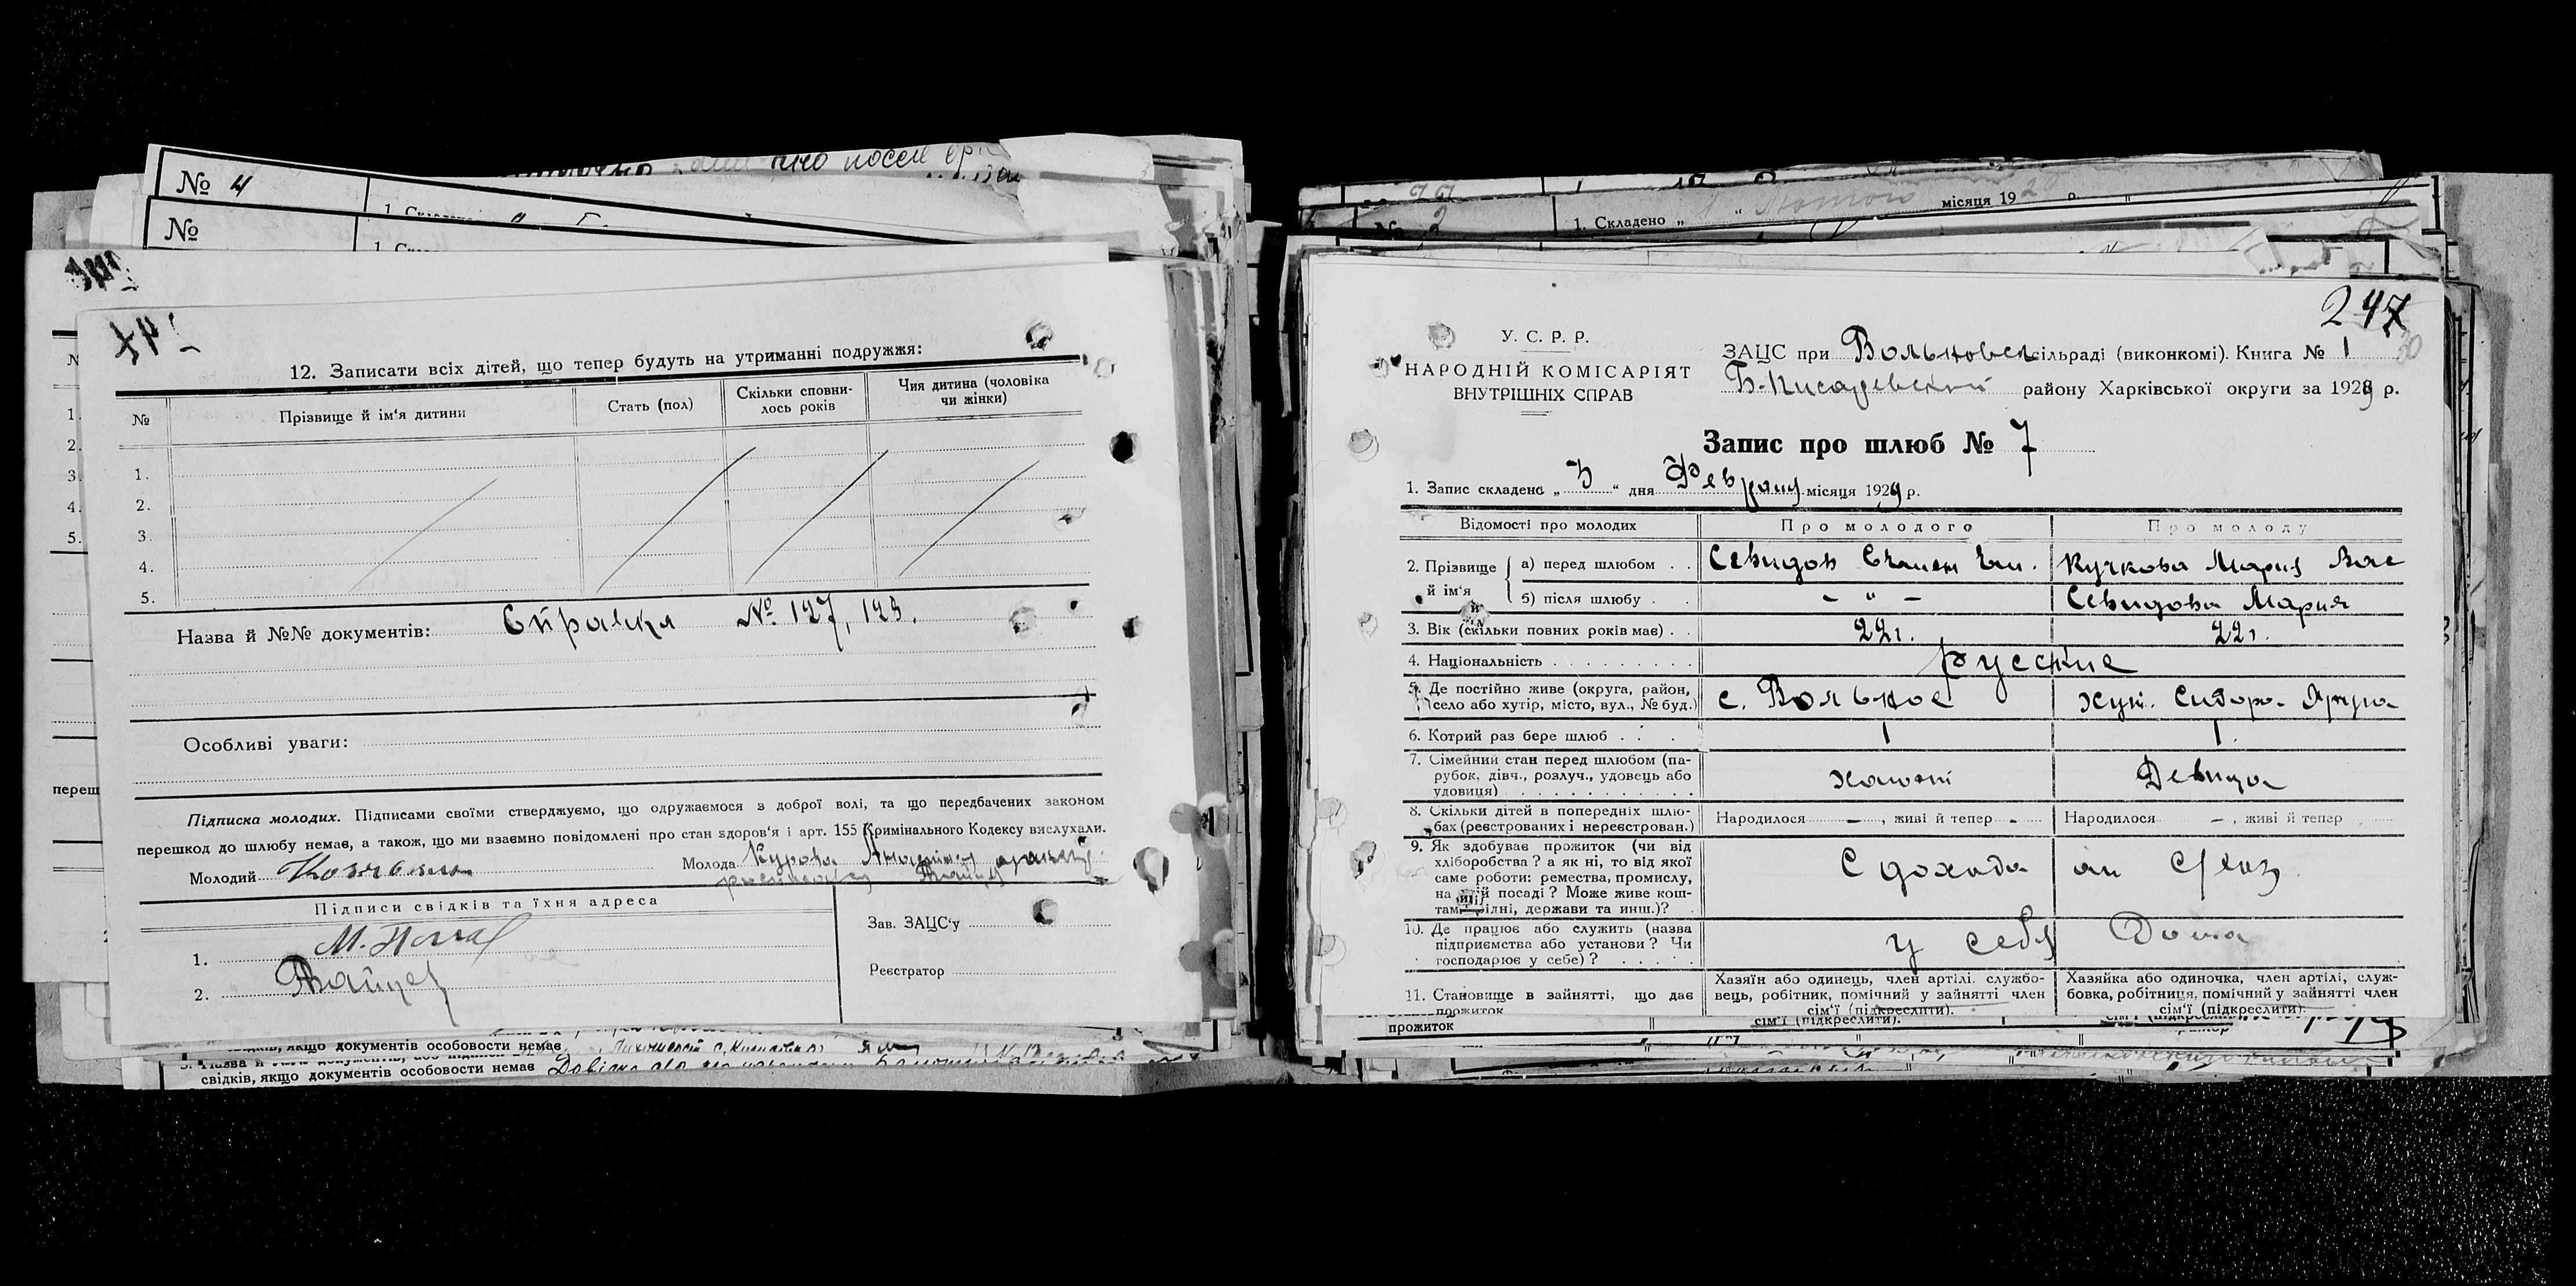 № 4
1.
№
12. Записати всіх дітей, що тепер будуть на утриманні подружжя:
№ Прізвище й ім'я дитини Стать (пол) Скільки сповни-
лось років Чия дитина (чоловіка
чи жінки)
1.
2.
3.
4.
5.
Назва й №№ документів: Справка № 127, 123.
Особливі уваги:
Підписка молодих. Підписами своїми стверджуємо, що одружаємося з доброї волі, та що передбачених законом
перешкод до шлюбу немає, а також, що ми взаємно повідомлені про стан здоров'я і арт. 155 Кримінального Кодексу вислухали.
Молодий Молода
Підписи свідків та їхня адреса
1.
2.
Зав. ЗАЦС'у
Реєстратор
свідків, якщо документів особовости немає
1. Складено „ “ місяця 192
247
30
У. С. Р. Р.
НАРОДНІЙ КОМІСАРІЯТ
ВНУТРІШНІХ СПРАВ
ЗАЦС при Вольновск сільраді (виконкомі). Книга № 1
Б-Писаревский району Харківської округи за 1929 р.
Запис про шлюб № 7
1. Запис складено „ 3 “ дня Февраля місяця 1929 р.
Відомості про молодих Про молодого Про молоду
2. Прізвище й ім'я
а) перед шлюбом . . Севидов Кучкова Мария Вас
б) після шлюбу . . – " – Севидова Мария
3. Вік (скільки повних років має) . . 22 г. 22 г.
4. Національність . . . . . . . . . русские
5. Де постійно живе (округа, район,
село або хутір, місто, вул., № буд.) с. Вольное хут. Сидора-Яруга
6. Котрий раз бере шлюб . . . 1 1.
7. Сімейний стан перед шлюбом (па-
рубок, дівч., розлуч., удовець або
удовиця) . . . . . . . . . . . холост Девица
8. Скільки дітей в попередніх шлю-
бах (реєстрованих і нереєстрован.) Народилося — , живі й тепер - Народилося – , живі й тепер
9. Як здобуває прожиток (чи від
хліборобства? а як ні, то від якої
саме роботи: ремества, промислу,
на якій посаді? Може живе кош-
тами рідні, держави та инш.)? С дохода от с/хоз
10. Де працює або служить (назва
підприємства або установи? Чи
господарює у себе)? . . . . . у себя Дома
11. Становище в зайнятті, що дає
прожиток
Хазяїн або одинець, член артілі, службо-
вець, робітник, помічний у зайнятті член
сім'ї (підкреслити).
Хазяйка або одиночка, член артілі, служ-
бовка, робітниця, помічний у зайнятті член
сім'ї (підкреслити).
прожиток сім'ї (підкреслити).